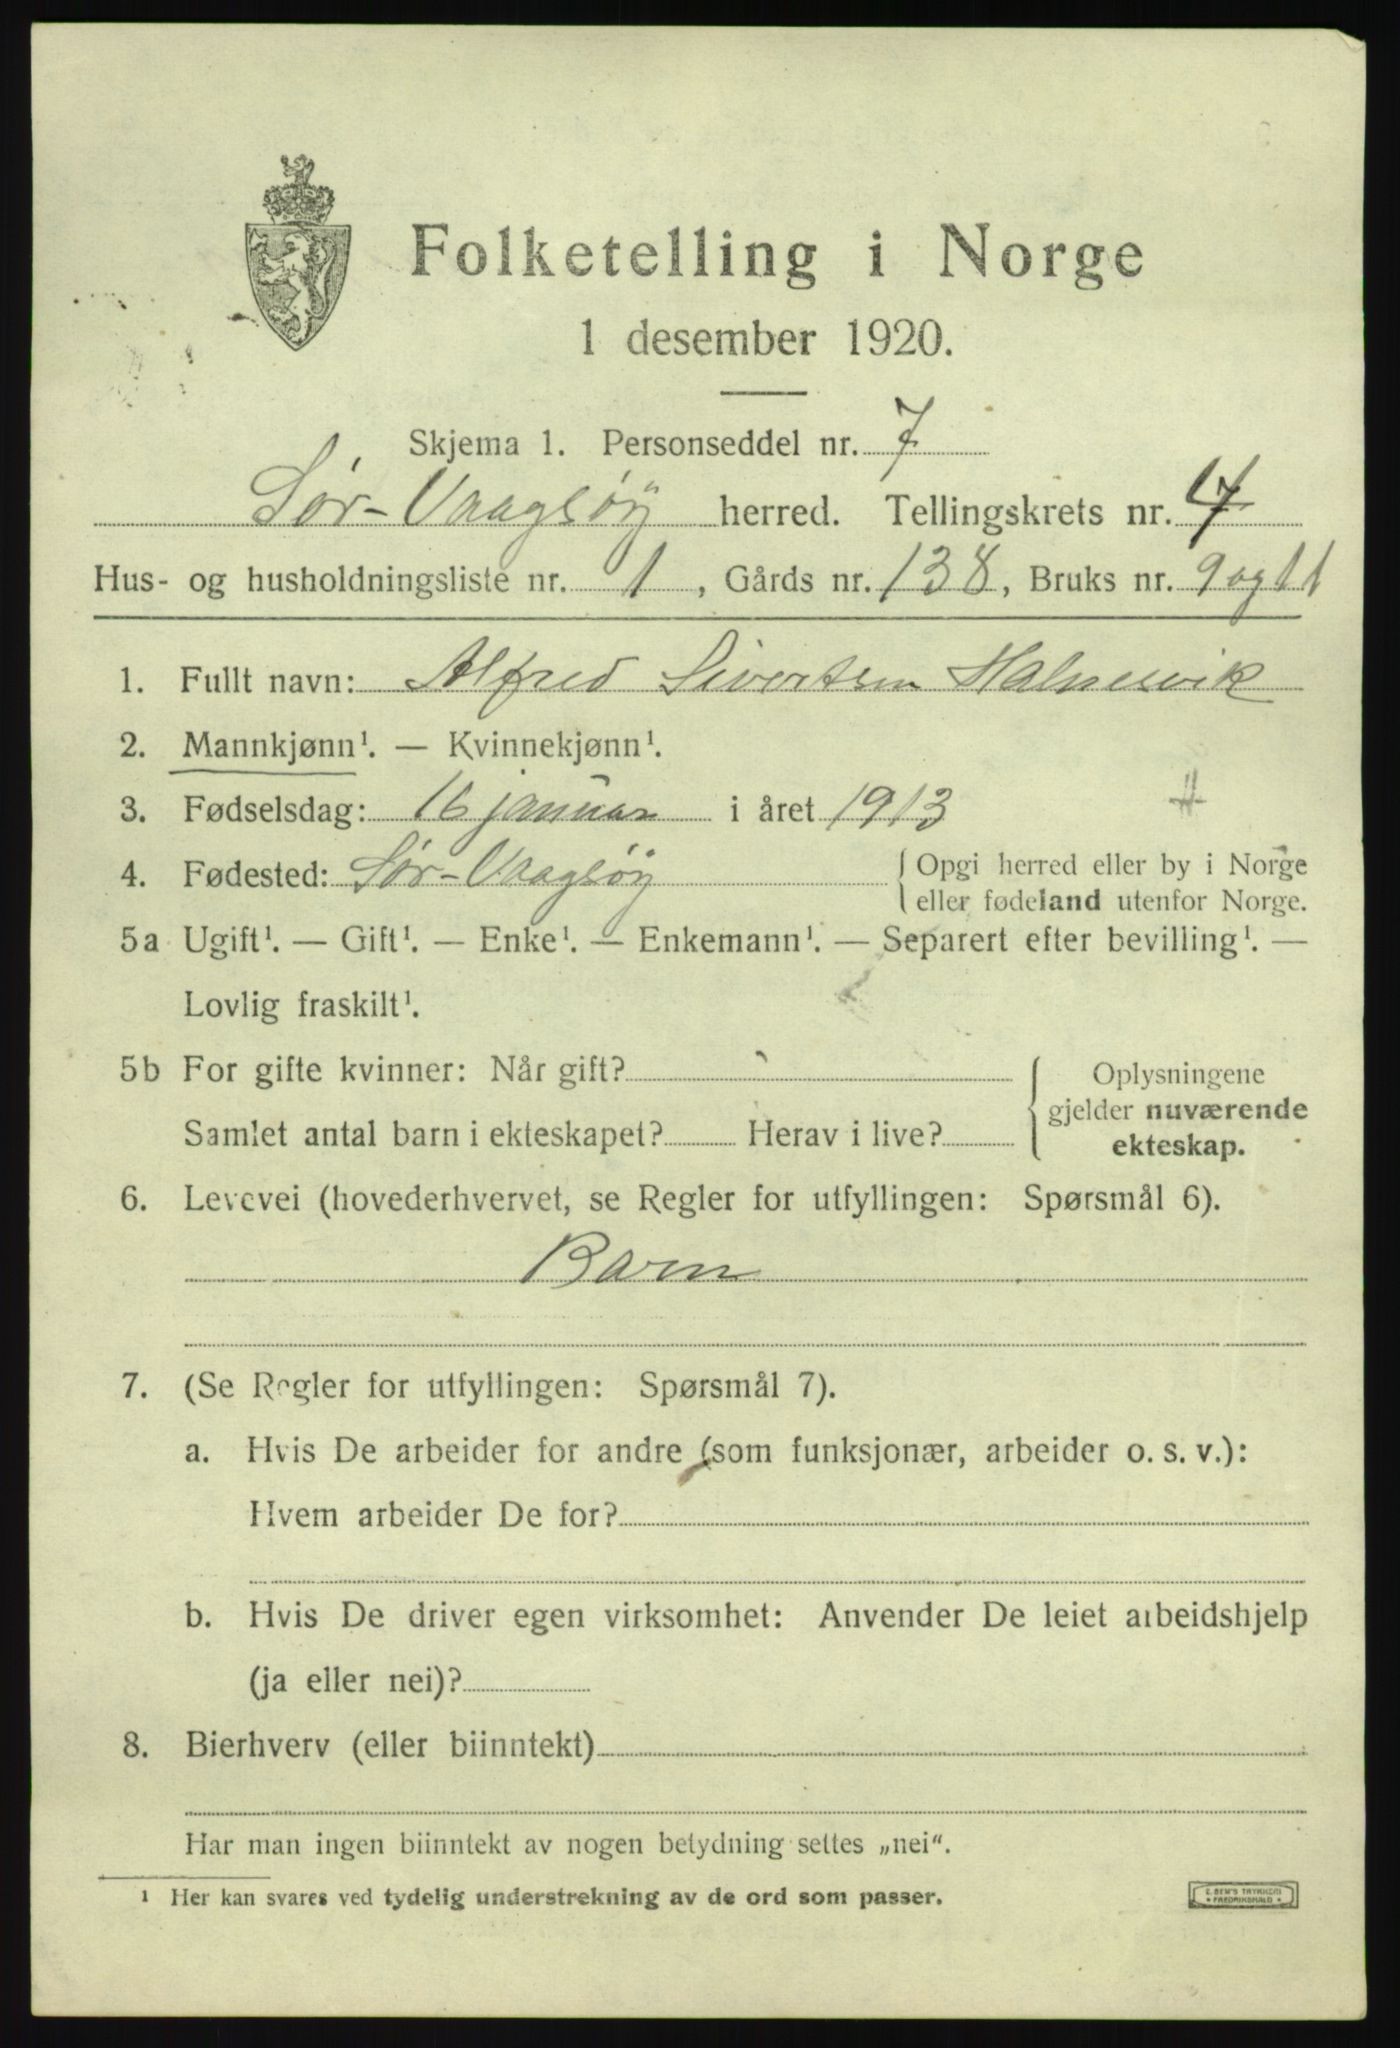 Folketelling i Norge
1 desember 1920.
Skjema 1. Personseddel nr. 7
Sør-Vaagsøy herred. Tellingskrets nr. 4
Hus- og husholdningsliste nr. 1, Gårds nr. 138, Bruks nr. 9 og 11
1. Fullt navn: Alfred Sivertsen Halnesvik
2. Mannkjønn¹. — Kvinnekjønn¹.
3. Fødselsdag: 16 januar i året 1913
4. Fødested: Sør-Vaagsøy { Opgi herred eller by i Norge
eller fødeland utenfor Norge.
5a Ugift¹. — Gift¹. — Enke¹. — Enkemann¹. — Separert efter bevilling¹. —
Lovlig fraskilt¹.
5b For gifte kvinner: Når gift? { Oplysningene
gjelder nuværende
Samlet antal barn i ekteskapet? Herav i live?
ekteskap.
6. Levevei (hovederhvervet, se Regler for utfyllingen: Spørsmål 6).
Barn
7. (Se Regler for utfyllingen: Spørsmål 7).
a. Hvis De arbeider for andre (som funksjonær, arbeider o. s. v.):
Hvem arbeider De for?
b. Hvis De driver egen virksomhet: Anvender De leiet arbeidshjelp
(ja eller nei)?
8. Bierhverv (eller biinntekt)
Har man ingen biinntekt av nogen betydning settes „nei“.
¹ Her kan svares ved tydelig understrekning av de ord som passer.
E. SEM'S TRYKKERI
FREDRIKSHALD